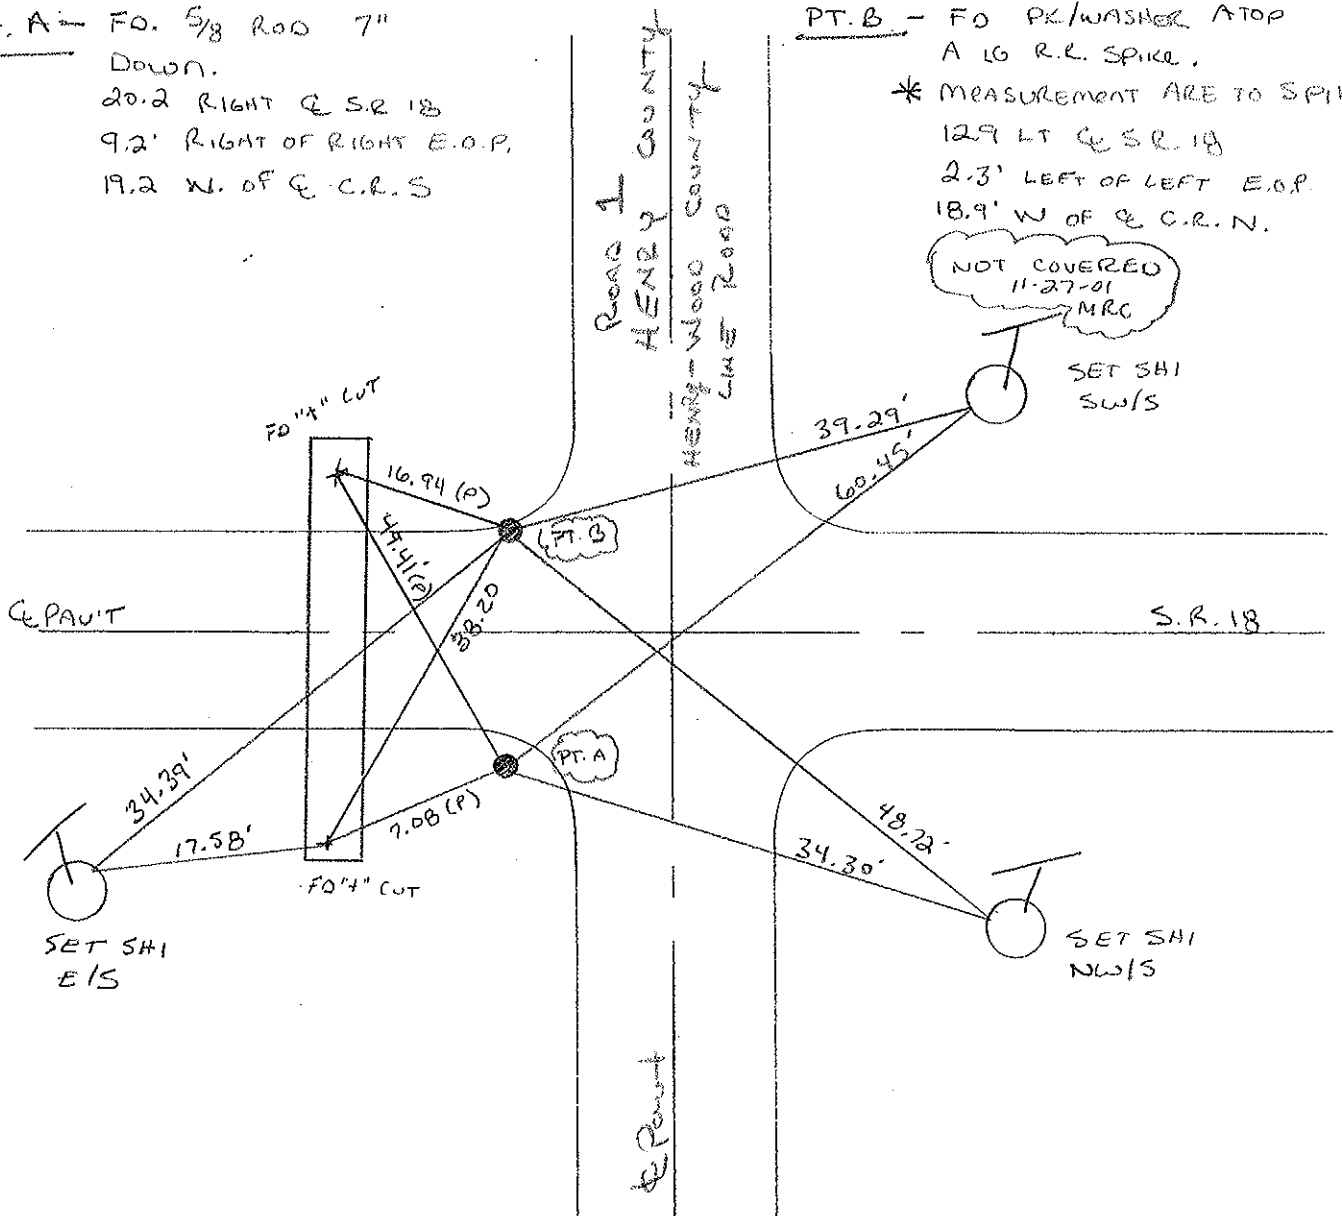 . A - FD. 5/8 ROD 7"
DOWN.
20.2 RIGHT ℄ S.R 18
9.2' RIGHT OF RIGHT E.O.P.
19.2 W. OF ℄ C.R.S
PT. B - FD PK/WASHER ATOP
A 16 R.R. SPIKE.
* MEASUREMENT ARE TO SPI
12.9 LT ℄ S.R. 18
2.3' LEFT OF LEFT E.O.P.
18.9' W OF ℄ C.R.N.
NOT COVERED
11-27-01
MRC
ROAD 1
HENRY COUNTY
HENRY-WOOD COUNTY
LINE ROAD
SET SHI
SW/S
FD "+" CUT
39.29'
60.45'
16.94 (P)
PT. B
49.41' (P)
38.20
℄ PAV'T
S.R. 18
PT. A
34.39'
7.08 (P)
17.58'
48.72
34.30'
FD "+" CUT
SET SHI
E/S
SET SHI
NW/S
℄ Pav't